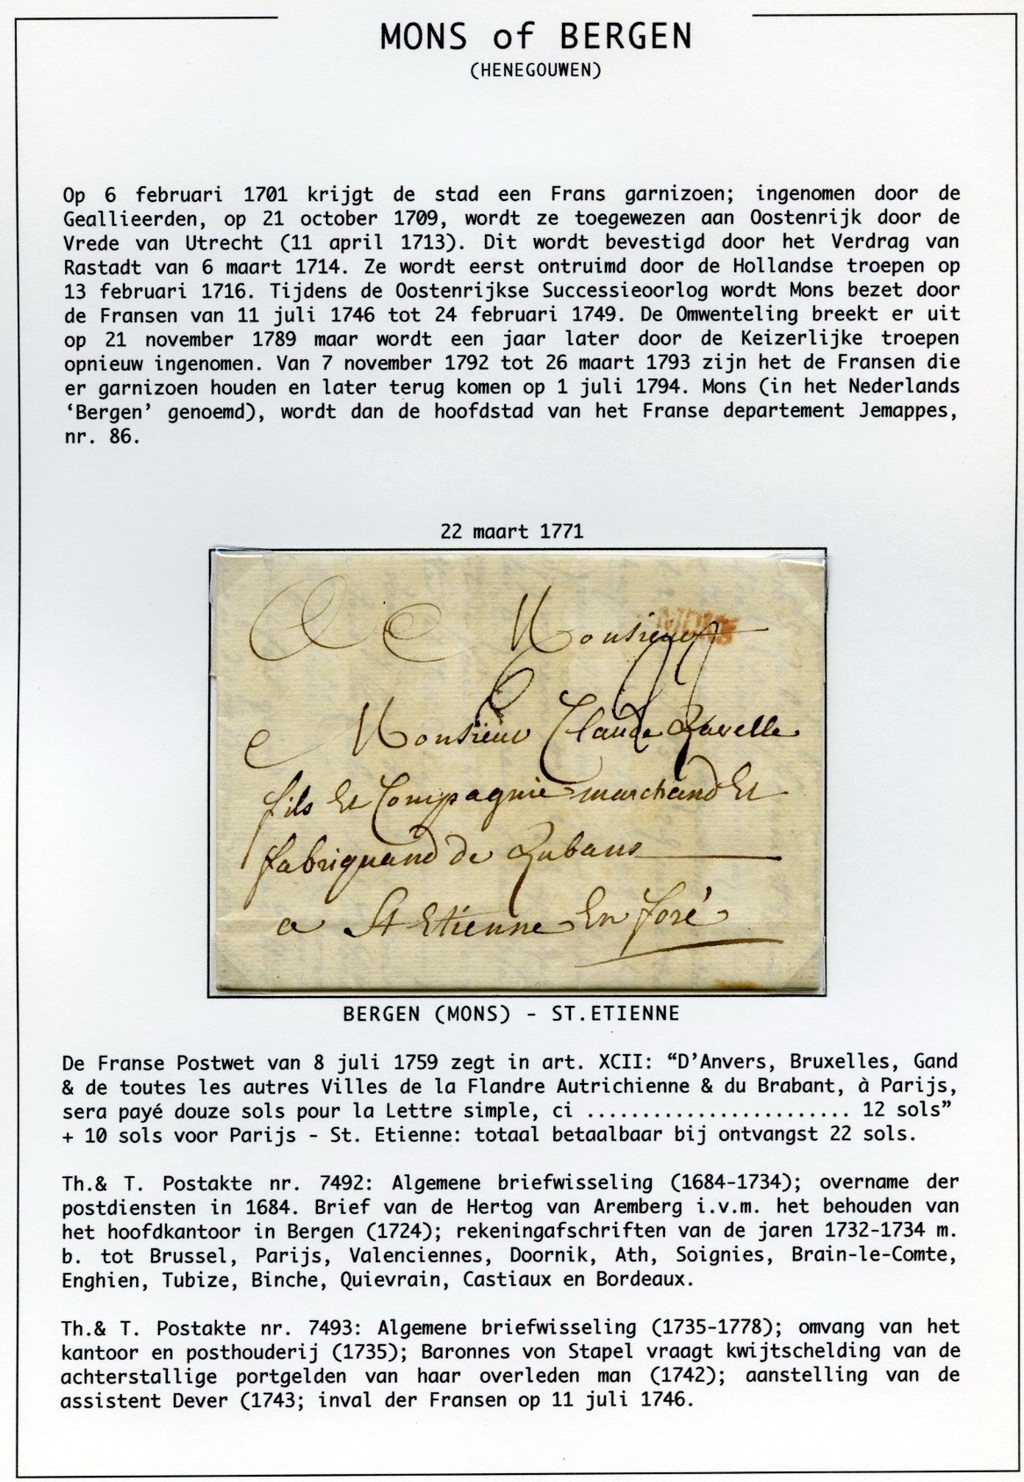 MONS of BERGEN
(HENEGOUWEN)
Op 6 februari 1701 krijgt de stad een Frans garnizoen; ingenomen door de
Geallieerden, op 21 october 1709, wordt ze toegewezen aan Oostenrijk door de
Vrede van Utrecht (11 april 1713). Dit wordt bevestigd door het Verdrag van
Rastadt van 6 maart 1714. Ze wordt eerst ontruimd door de Hollandse troepen op
13 februari 1716. Tijdens de Oostenrijkse Successieoorlog wordt Mons bezet door
de Fransen van 11 juli 1746 tot 24 februari 1749. De Omwenteling breekt er uit
op 21 november 1789 maar wordt een jaar later door de Keizerlijke troepen
opnieuw ingenomen. Van 7 november 1792 tot 26 maart 1793 zijn het de Fransen die
er garnizoen houden en later terug komen op 1 juli 1794. Mons (in het Nederlands
‘Bergen’ genoemd), wordt dan de hoofdstad van het Franse departement Jemappes,
nr. 86.
22 maart 1771
A Monsieur
Monsieur Claude Ravelle
fils Et Compagnie marchand Et
fabriquand de Rubans
a St Etienne En foré
BERGEN (MONS) - ST.ETIENNE
De Franse Postwet van 8 juli 1759 zegt in art. XCII: “D’Anvers, Bruxelles, Gand
& de toutes les autres Villes de la Flandre Autrichienne & du Brabant, à Parijs,
sera payé douze sols pour la Lettre simple, ci ........................ 12 sols”
+ 10 sols voor Parijs - St. Etienne: totaal betaalbaar bij ontvangst 22 sols.
Th.& T. Postakte nr. 7492: Algemene briefwisseling (1684-1734); overname der
postdiensten in 1684. Brief van de Hertog van Aremberg i.v.m. het behouden van
het hoofdkantoor in Bergen (1724); rekeningafschriften van de jaren 1732-1734 m.
b. tot Brussel, Parijs, Valenciennes, Doornik, Ath, Soignies, Brain-le-Comte,
Enghien, Tubize, Binche, Quievrain, Castiaux en Bordeaux.
Th.& T. Postakte nr. 7493: Algemene briefwisseling (1735-1778); omvang van het
kantoor en posthouderij (1735); Baronnes von Stapel vraagt kwijtschelding van de
achterstallige portgelden van haar overleden man (1742); aanstelling van de
assistent Dever (1743; inval der Fransen op 11 juli 1746.